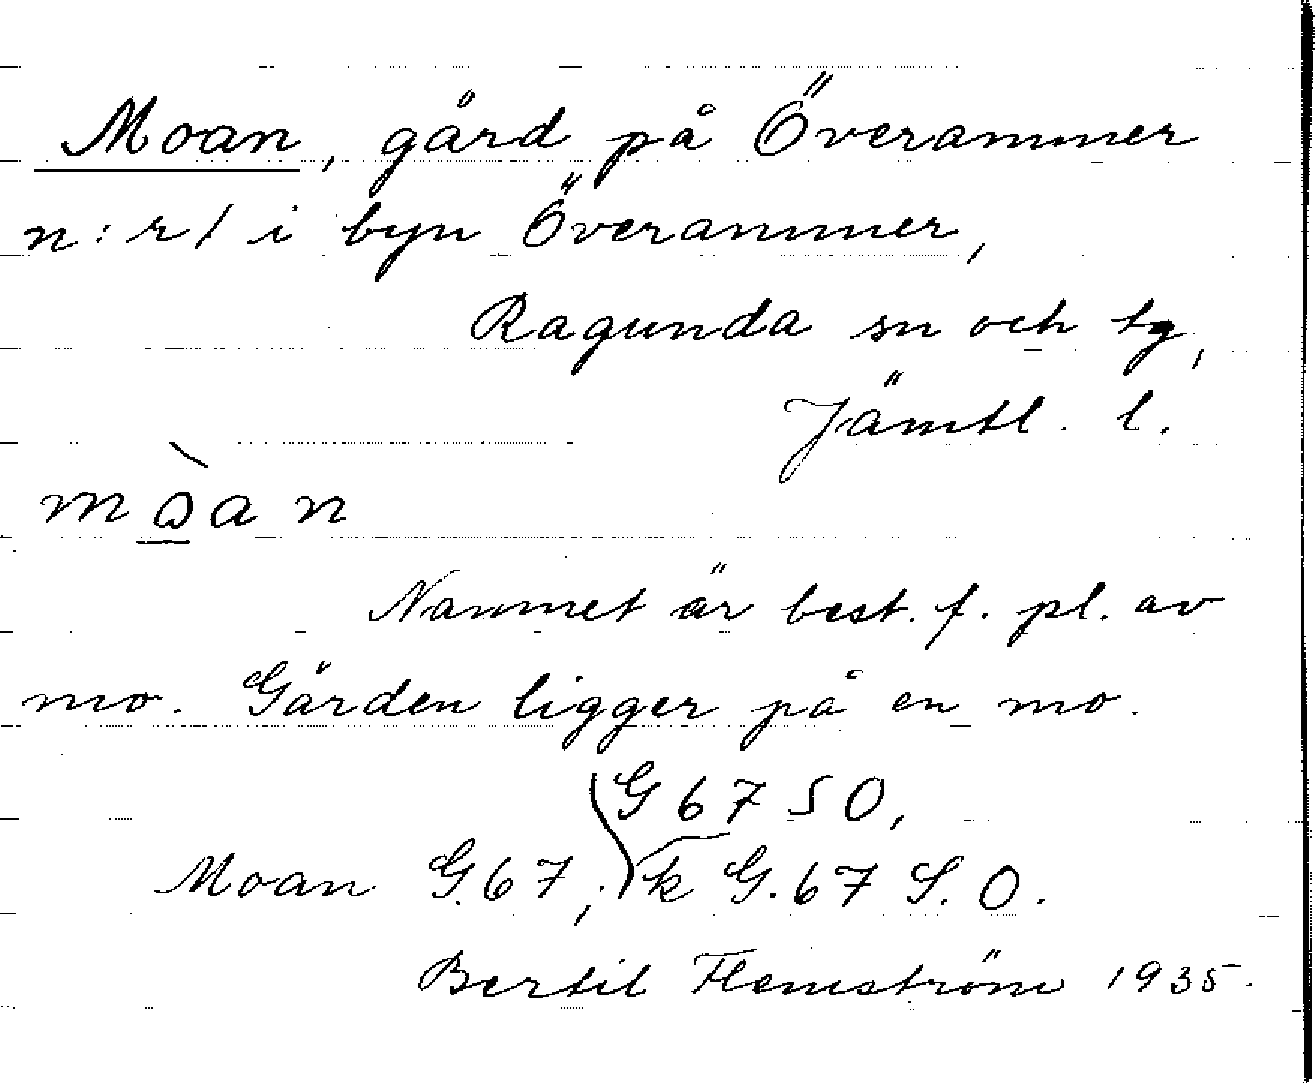 Moan, gård på Överammer
n:r 1 i byn Överammer,
Ragunda sn och tg,
Jämtl. l.
mòan
Namnet är best. f. pl. av
mo. Gården ligger på en mo.
G 67 SO,
Moan G.67; k G.67 S.O.
Bertil Flemström 1935.